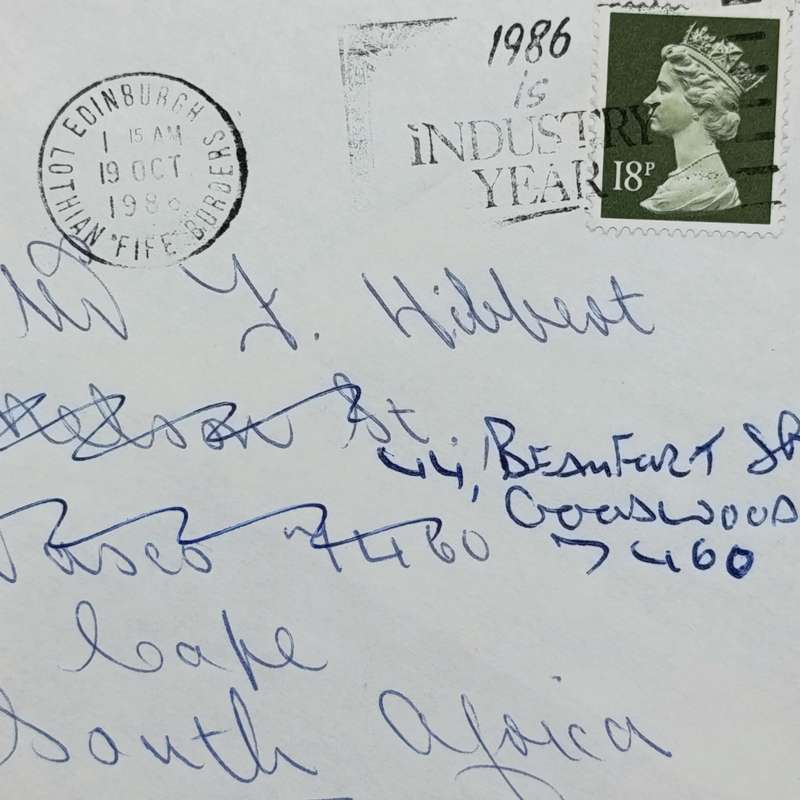 EDINBURGH
LOTHIAN FIFE BORDERS
1 15 AM
19 OCT
1986
1986
is
INDUSTRY
YEAR
18P
Mr Y. Hibbert
St.
44, BEAUFORT
GOODWOOD
7460
Vasco 7460
Cape
South Africa